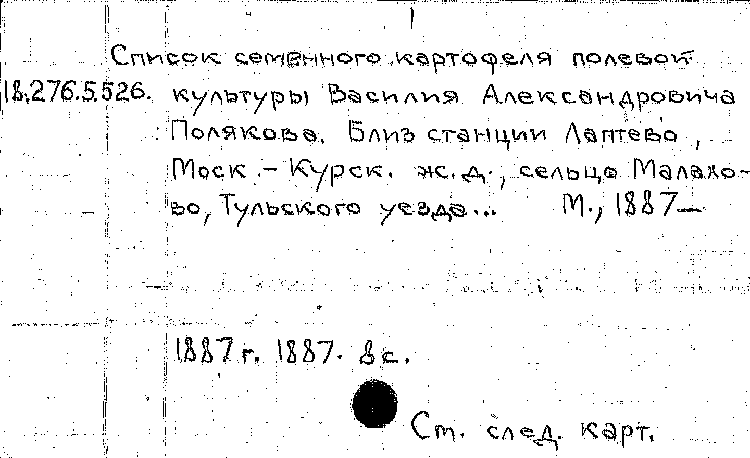 Список семенного картофеля полевой
18.276.5.526. культуры Василия Александровича
Полякова. Близ станции Лаптево,
Моск.-Курск. ж.д., сельцо Малахо-
во, Тульского уезда... М., 1887—
1887 г. 1887. 8 с.
См. след. карт.